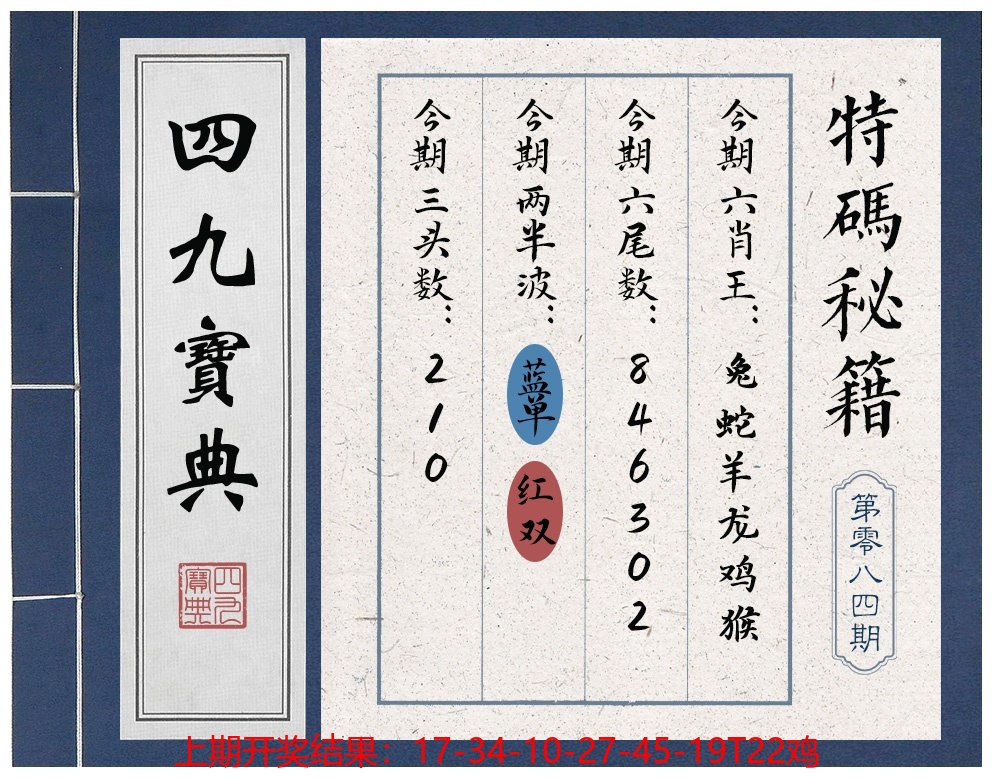 特碼秘籍
第零八四期
今期六肖王：兔蛇羊龙鸡猴
今期六尾数：846302
今期两半波：蓝单 红双
今期三头数：210
四九寶典
四九寶典
上期开奖结果：17-34-10-27-45-19T22鸡